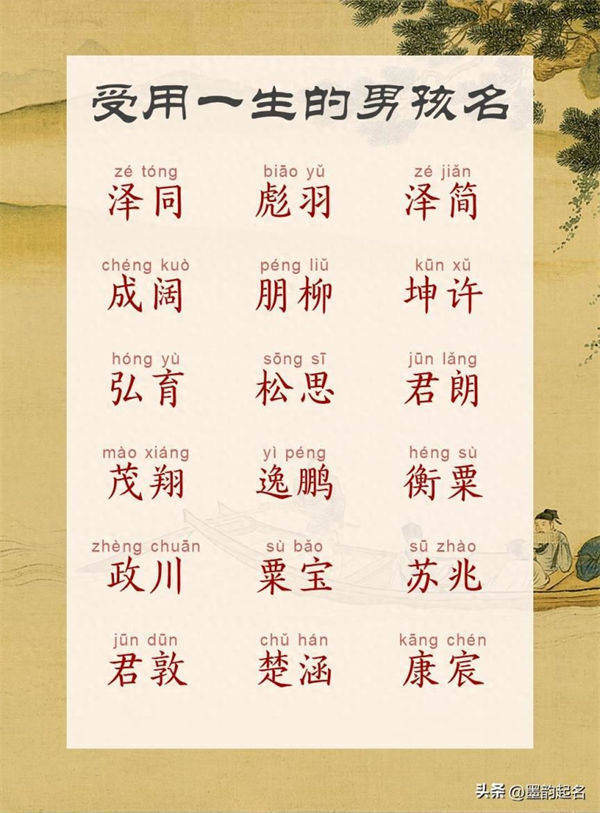 受用一生的男孩名
zé tóng biāo yǔ zé jiǎn
泽同 彪羽 泽简
chéng kuò péng liǔ kūn xǔ
成阔 朋柳 坤许
hóng yù sōng sī jūn lǎng
弘育 松思 君朗
mào xiáng yì péng héng sù
茂翔 逸鹏 衡粟
zhèng chuān sù bǎo sū zhào
政川 粟宝 苏兆
jūn dūn chǔ hán kāng chén
君敦 楚涵 康宸
头条 @墨韵起名